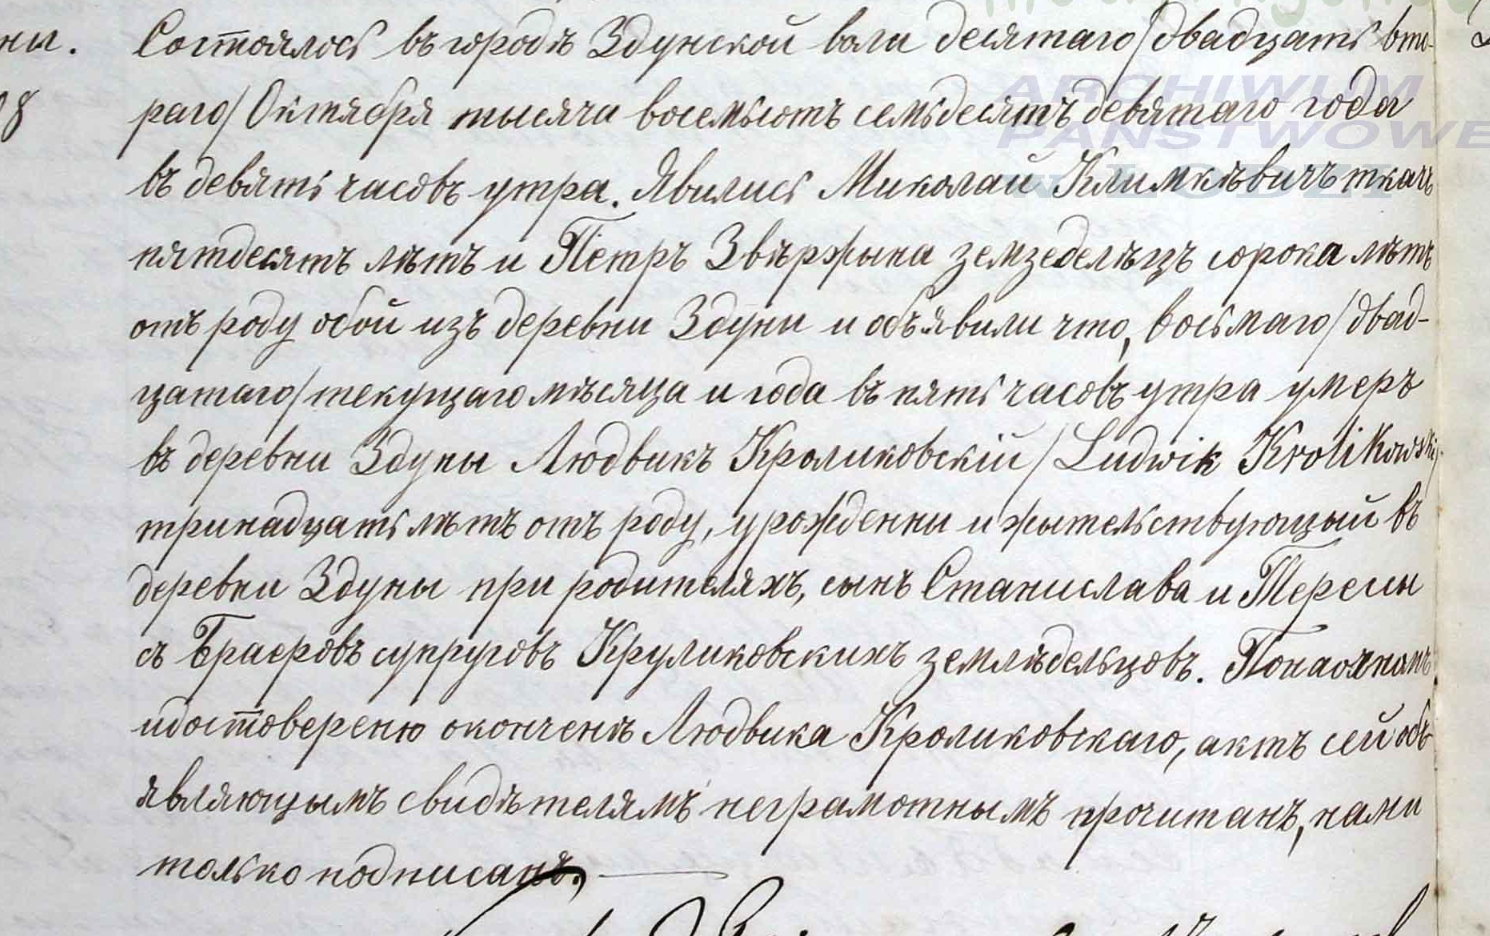 ны. Состоялось въ городѣ Здунской воли десятаго/двадцать вто-
8 раго/ Октября тысяча восемьсотъ семьдесятъ девятаго года
въ девять часовъ утра. Явились Миколай Климкѣвичъ ткачъ
пятдесятъ лѣтъ и Петръ Звѣржына земзеделѣцъ сорока лѣтъ
отъ роду обои изъ деревни Здуни и объявили что, восьмаго/двад-
цатаго/текущаго мѣсяца и года въ пять часовъ утра умеръ
въ деревни Здуны Людвикъ Кроликовскій/Ludwik Krolikowski/
тринадцать лѣтъ отъ роду, урожденны и жытельствующый въ
деревни Здуны при родителяхъ, сынъ Станислава и Тересы
съ Браеровъ супруговъ Круликовскихъ землѣдельцовъ.
идостоверению окончѣнѣ Людвика Кроликовскаго, актъ сей объ-
являющымъ свидѣтелямъ неграмотнымъ прочитанъ, нами
только подписанъ.
ARCHIWUM
PAŃSTWOWE
W ŁODZI